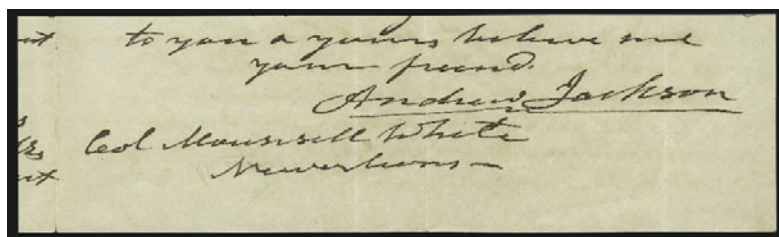 to you & yours believe me
your friend.
Andrew Jackson
Col Maunsell White
Neworleans –